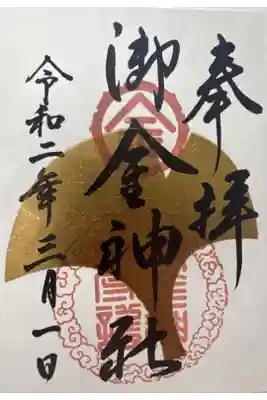 奉拝
御金神社
令和二年三月一日